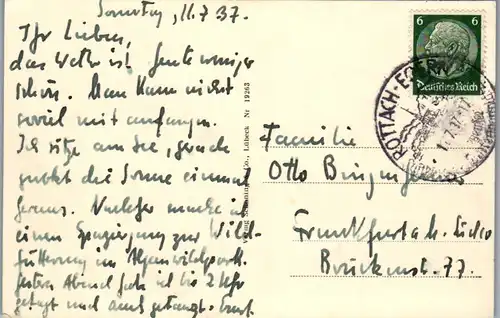 Sonntag, 11.7.37.
Ihr Lieben,
das Wetter ist heute weniger
schön. Man kann nicht
soviel mit anfangen.
Ich sitze am See, gerade
guckt die Sonne einmal
heraus. Nachher mache ich
einen Spaziergang zur Wild-
fütterung im Alpenwildpark.
gestern Abend habe ich bis 2 Uhr
getagt und auch getanzt.
Nr 19263
Lübeck
6
6
Deutsches Reich
ROTTACH-EGERN
Familie
Otto
Frankfurt a. M. - Süd
Brückenstr. 77.